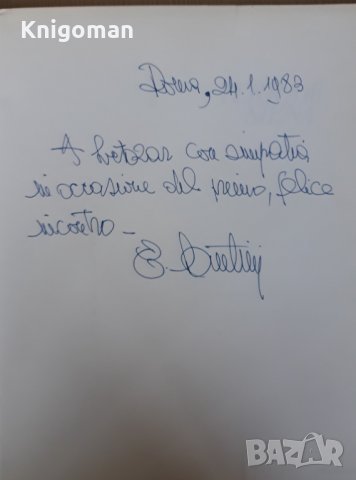 Knigoman
Roma, 24.1.1983
A con simpatia
in occasione del primo, felice
incontro -
E.
BAZAR